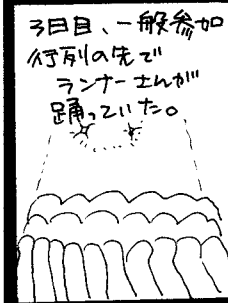 3日目、一般参加
行列の先で
ランナーさんが
踊っていた。